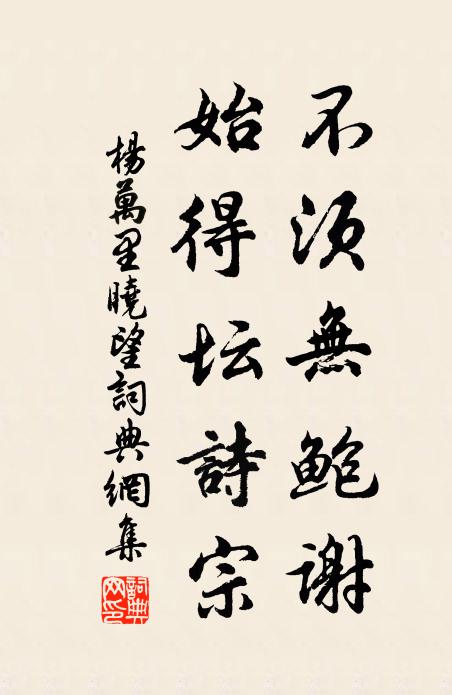 不须無鮑谢
始得坛詩宗
楊萬里曉望詞典網集
詞典
网印